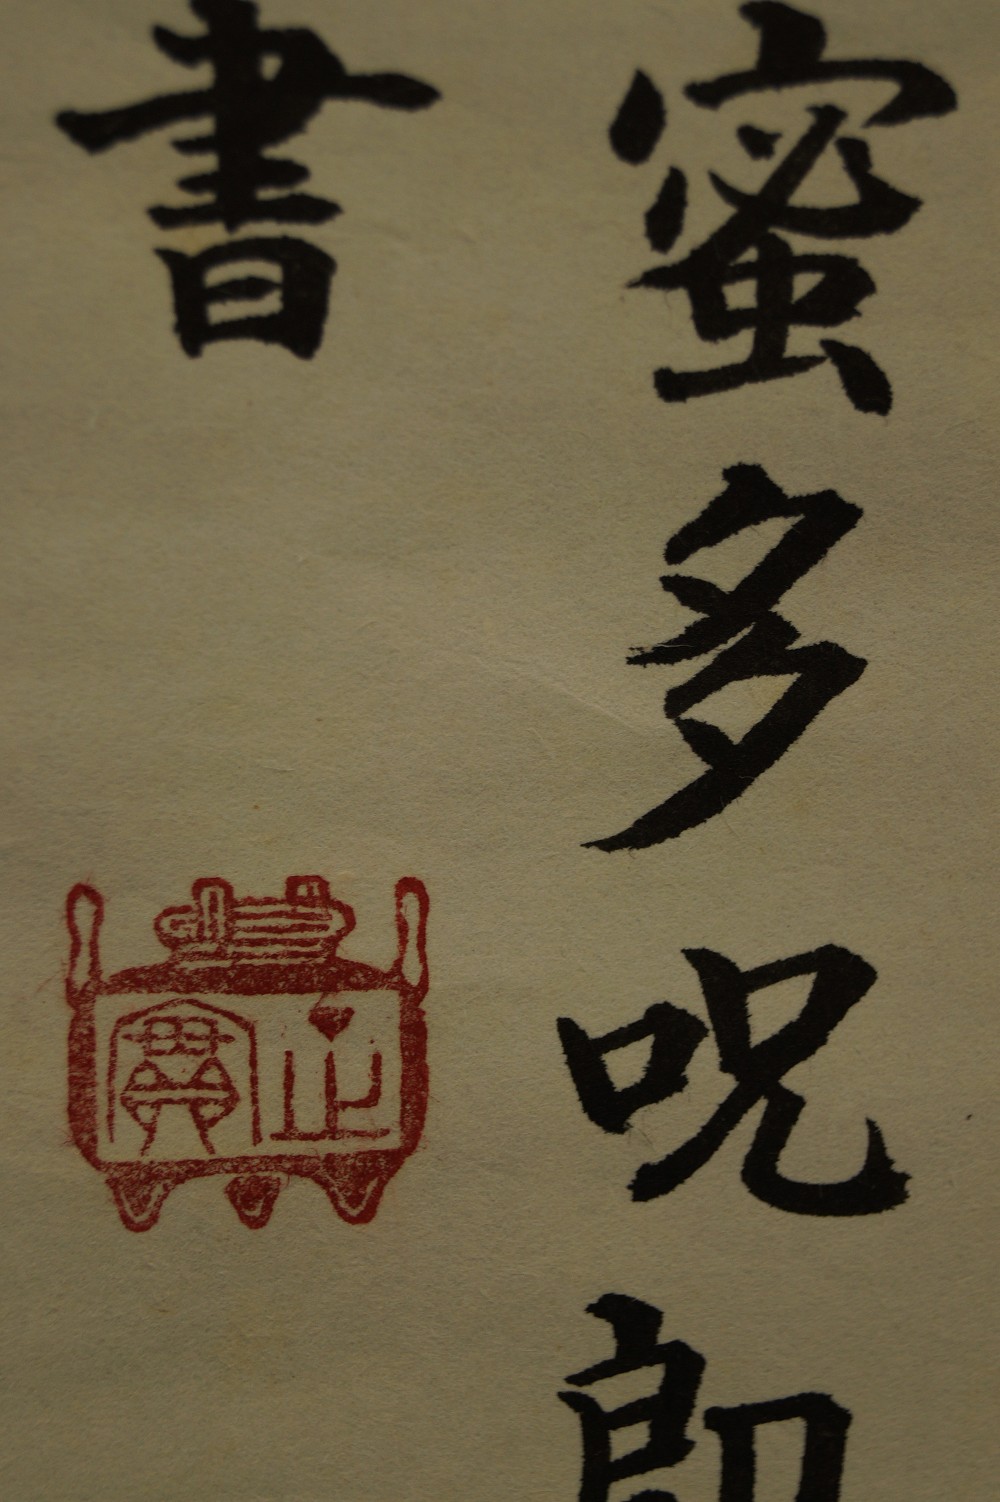 蜜多呪即
書
正